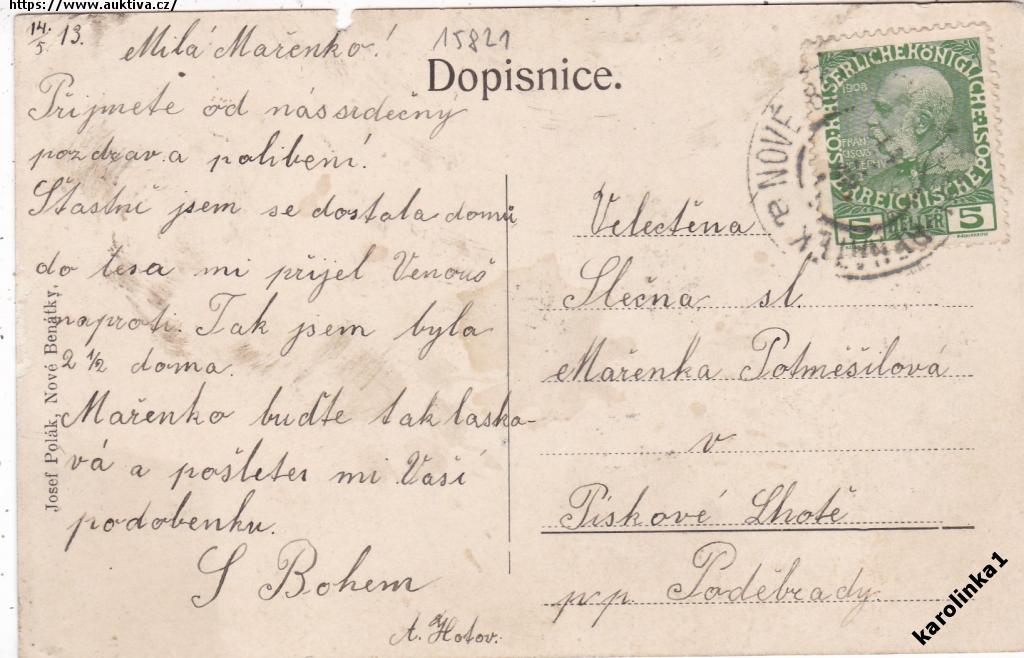 https://www.auktiva.cz/
14./5 13.
Milá Mařenko!
15821
Dopisnice.
Přijmete od nás srdečný
pozdrav a políbení.
Šťastně jsem se dostala domů
do lesa mi přijel Venouš
naproti. Tak jsem byla
2 1/2 doma.
Mařenko buďte tak laska-
vá a pošletes mi Vaší
podobenku.
S Bohem
A. Hotov.
Josef Polák, Nové Benátky.
Velectěna
Slečna sl.
Mařenka Potměšilová
v
Pískové Lhotě
p. p. Poděbrady.
NOVÉ
KAISERLICHE KÖNIGLICHE
ÖSTERREICHISCHE POST
1908
5 HELLER 5
karolinka1